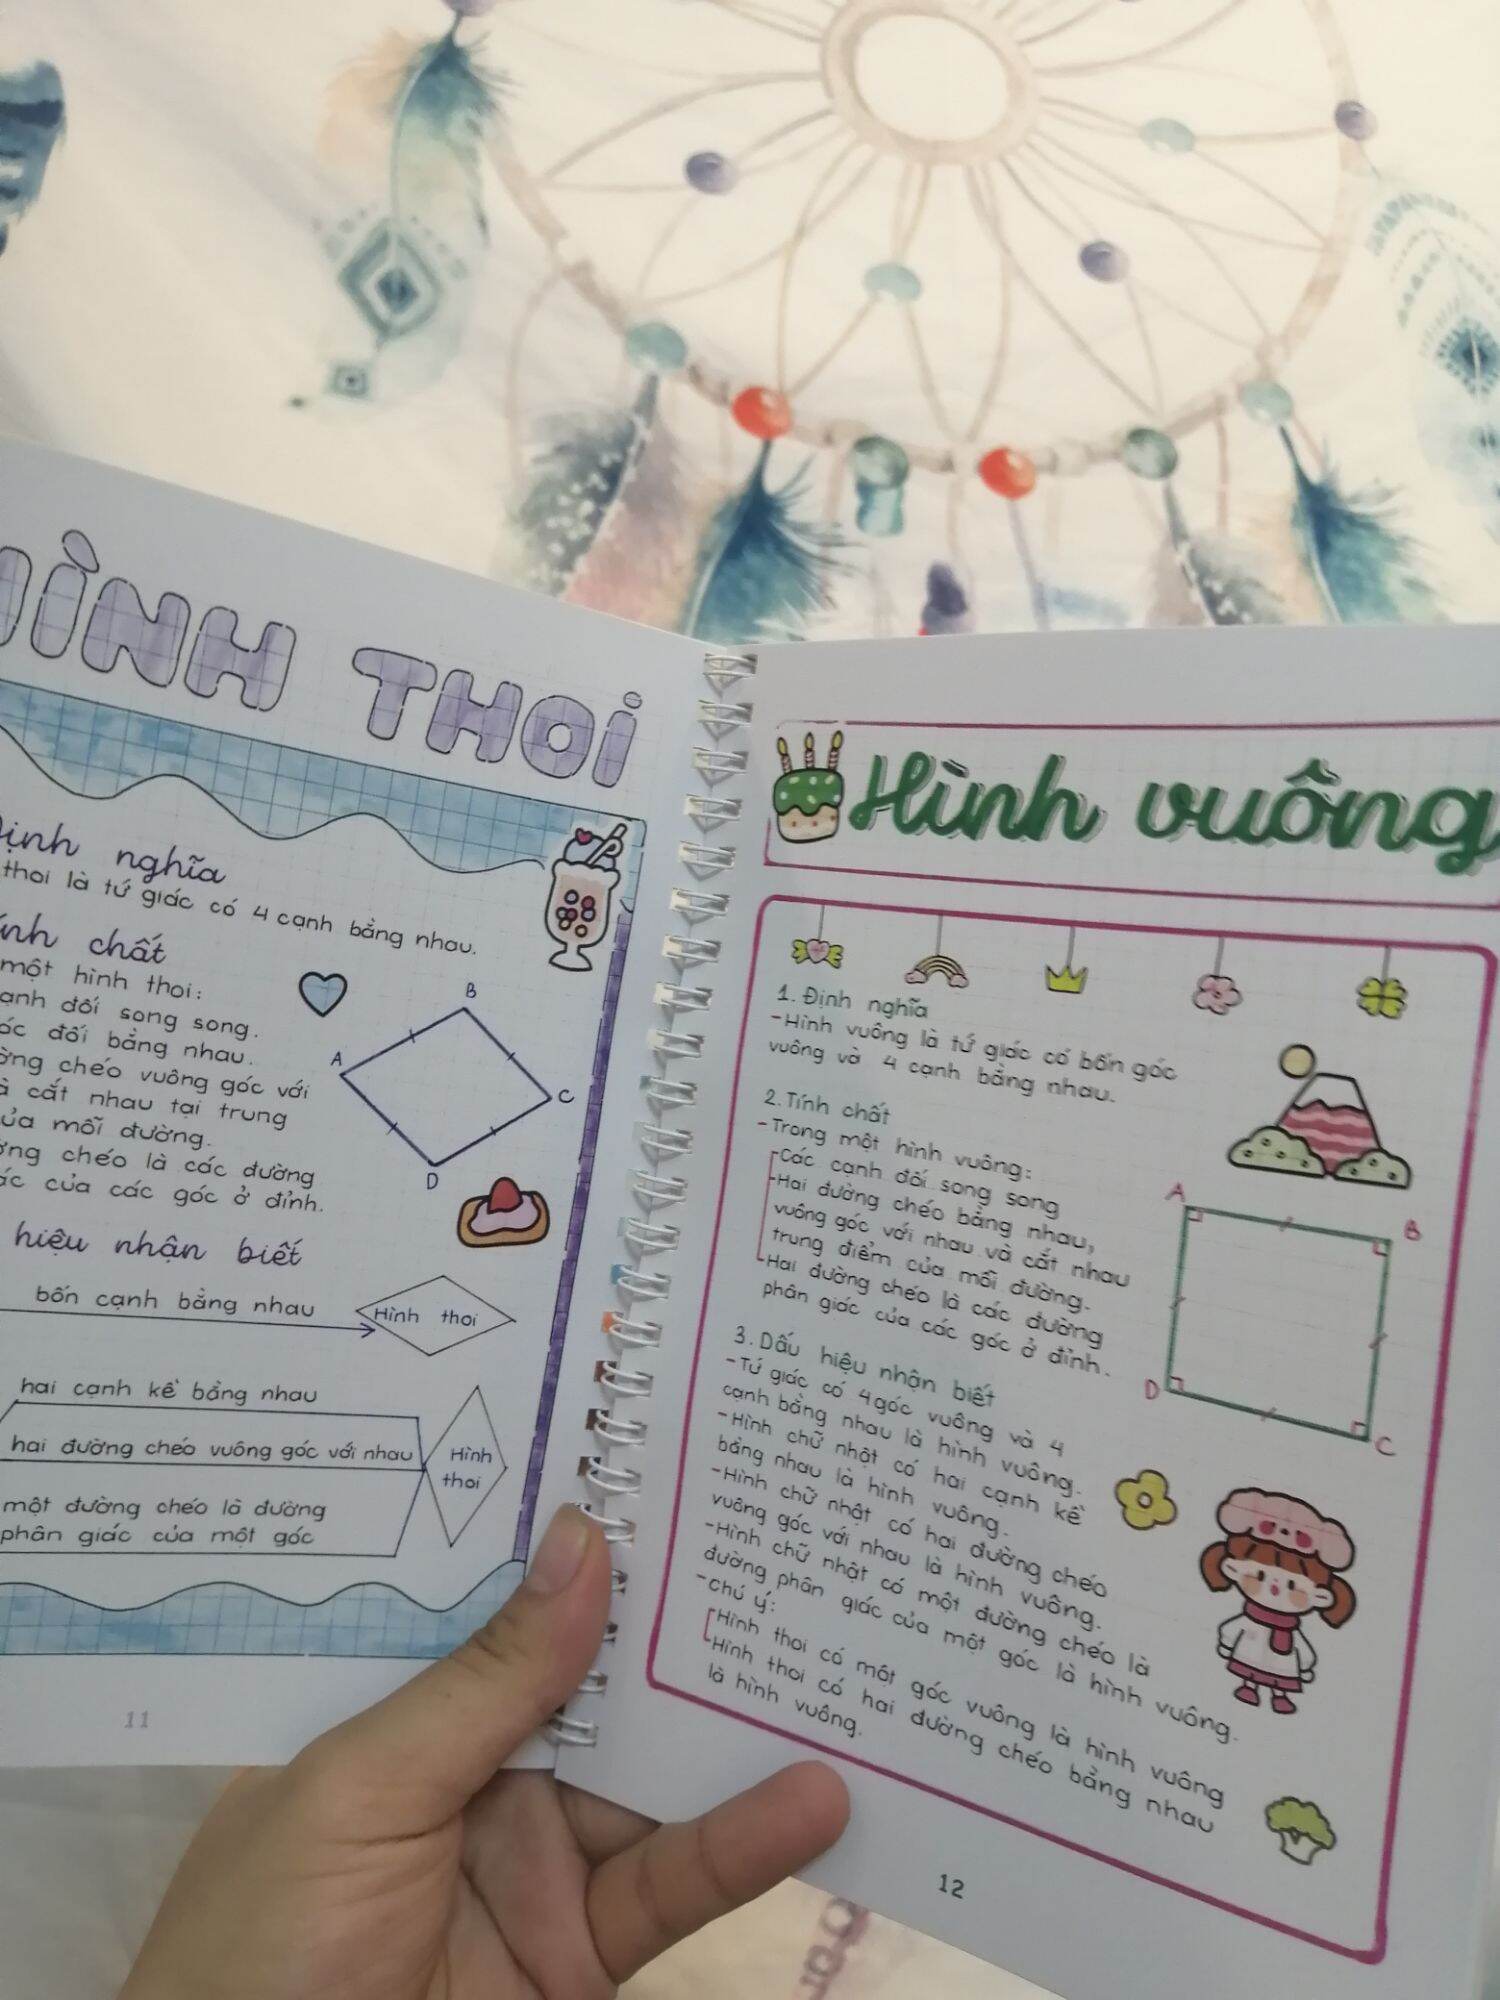 HÌNH THOI
Định nghĩa
thoi là tứ giác có 4 cạnh bằng nhau.
chất
một hình thoi:
đối song song.
đối bằng nhau.
chéo vuông góc với
cắt nhau tại trung
của mỗi đường.
chéo là các đường
của các góc ở đỉnh.
A
B
C
D
hiệu nhận biết
bốn cạnh bằng nhau
Hình thoi
hai cạnh kề bằng nhau
hai đường chéo vuông góc với nhau
Hình
thoi
một đường chéo là đường
phân giác của một góc
11
Hình vuông
1. Định nghĩa
-Hình vuông là tứ giác có bốn góc
vuông và 4 cạnh bằng nhau.
2. Tính chất
-Trong một hình vuông:
-Các cạnh đối song song
-Hai đường chéo bằng nhau,
vuông góc với nhau và cắt nhau
trung điểm của mỗi đường.
-Hai đường chéo là các đường
phân giác của các góc ở đỉnh.
A
B
D
C
3. Dấu hiệu nhận biết
-Tứ giác có 4 góc vuông và 4
cạnh bằng nhau là hình vuông.
-Hình chữ nhật có hai cạnh kề
bằng nhau là hình vuông.
-Hình chữ nhật có hai đường chéo
vuông góc với nhau là hình vuông.
-Hình chữ nhật có một đường chéo là
đường phân giác của một góc là hình vuông.
-Chú ý:
-Hình thoi có một góc vuông là hình vuông
-Hình thoi có hai đường chéo bằng nhau
là hình vuông.
12